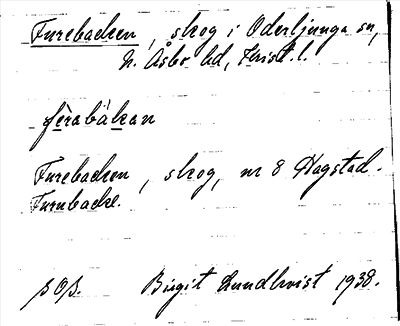 Furebacken, skog i Oderljunga sn,
N. Åsbo hd, Krist. l.
fùrabàkan
Furebacken, skog, nr 8 Hagstad.
Furubacke.
Birgit Lundkvist 1938.